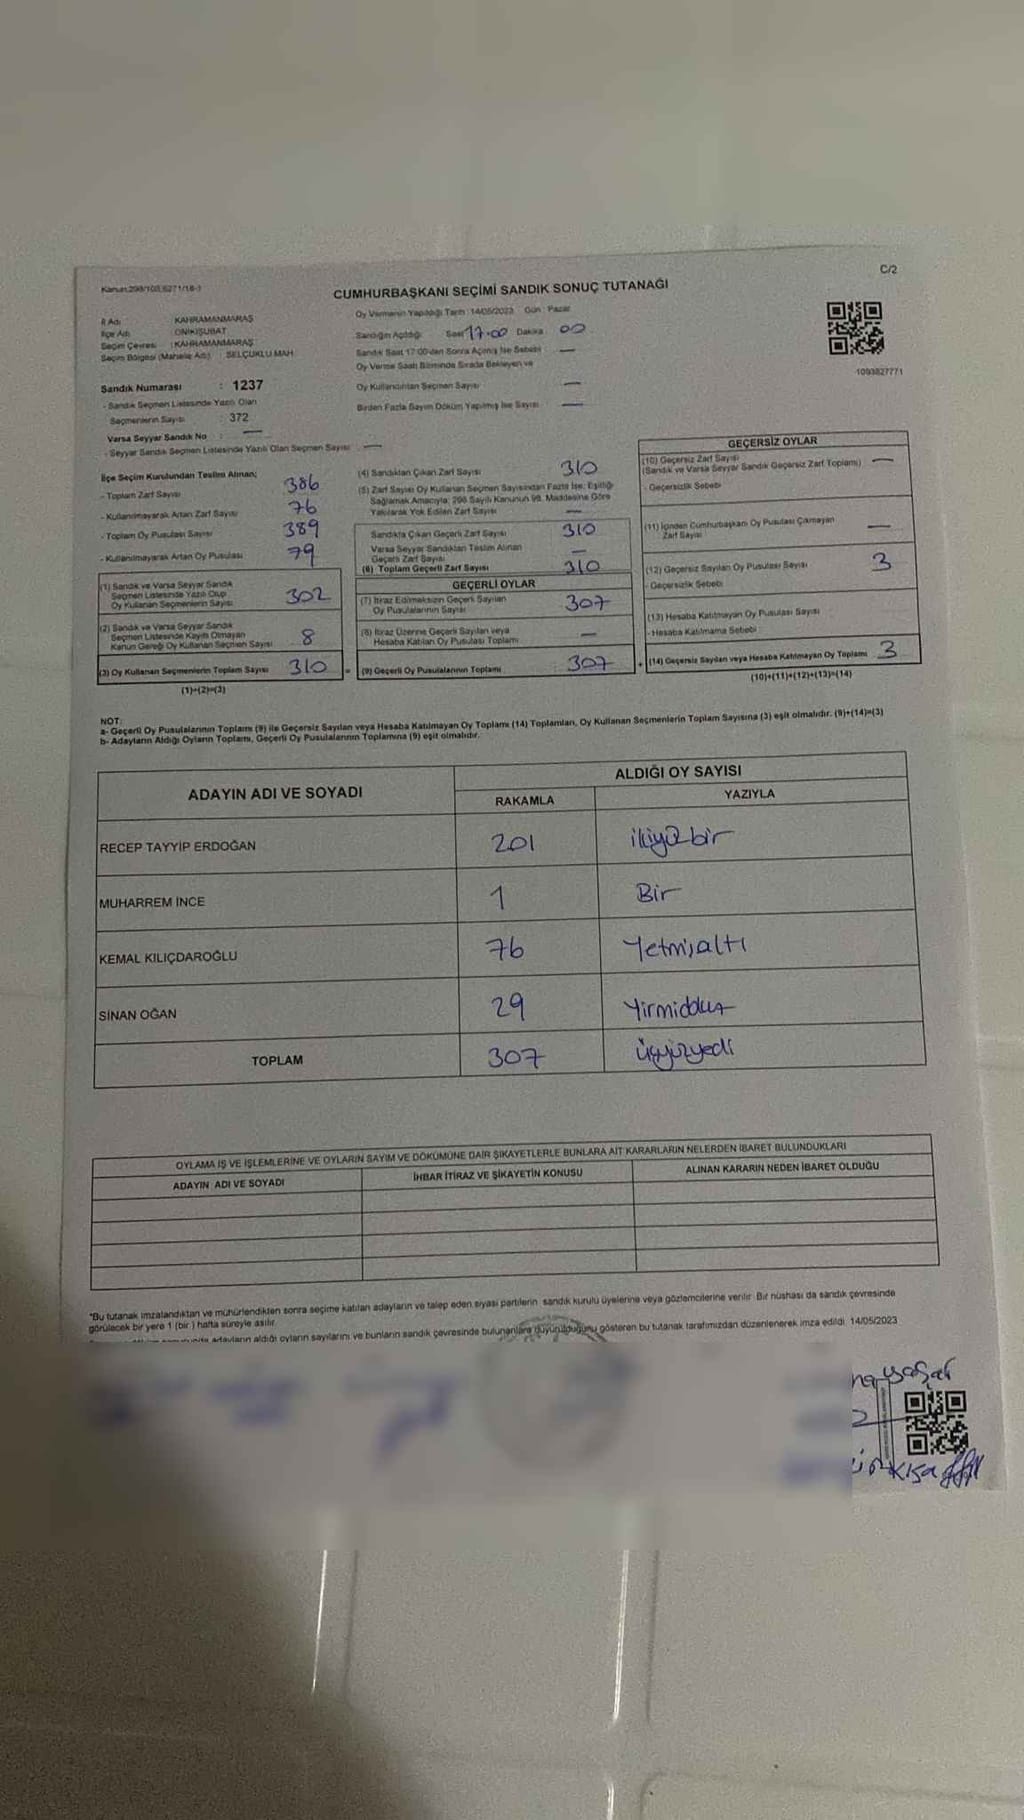 C/2
Kanun:298/103,6271/18-3
CUMHURBAŞKANI SEÇİMİ SANDIK SONUÇ TUTANAĞI
İl Adı : KAHRAMANMARAŞ
İlçe Adı : ONİKİŞUBAT
Seçim Çevresi : KAHRAMANMARAŞ
Seçim Bölgesi (Mahalle Adı) : SELÇUKLU MAH.
Sandık Numarası : 1237
- Sandık Seçmen Listesinde Yazılı Olan
Seçmenlerin Sayısı : 372
Varsa Seyyar Sandık No : —
- Seyyar Sandık Seçmen Listesinde Yazılı Olan Seçmen Sayısı : —
Oy Vermenin Yapıldığı Tarih : 14/05/2023 Gün : Pazar
Sandığın Açıldığı Saat 17:00 Dakika : 00
Sandık Saat 17:00'den Sonra Açılmış İse Sebebi : —
Oy Verme Saati Bitiminde Sırada Bekleyen ve
Oy Kullandırılan Seçmen Sayısı : —
Birden Fazla Sayım Döküm Yapılmış İse Sayısı : —
1093827771
İlçe Seçim Kurulundan Teslim Alınan;
- Toplam Zarf Sayısı 386
- Kullanılmayarak Artan Zarf Sayısı 76
- Toplam Oy Pusulası Sayısı 389
- Kullanılmayarak Artan Oy Pusulası 79
(1) Sandık ve Varsa Seyyar Sandık
Seçmen Listesinde Yazılı Olup
Oy Kullanan Seçmenlerin Sayısı 302
(2) Sandık ve Varsa Seyyar Sandık
Seçmen Listesinde Kayıtlı Olmayan
Kanun Gereği Oy Kullanan Seçmen Sayısı 8
(3) Oy Kullanan Seçmenlerin Toplam Sayısı 310
(1)+(2)=(3)
(4) Sandıktan Çıkan Zarf Sayısı 310
(5) Zarf Sayısı Oy Kullanan Seçmen Sayısından Fazla İse; Eşitliği
Sağlamak Amacıyla, 298 Sayılı Kanunun 98. Maddesine Göre
Yakılarak Yok Edilen Zarf Sayısı —
Sandıkta Çıkan Geçerli Zarf Sayısı 310
Varsa Seyyar Sandıktan Teslim Alınan
Geçerli Zarf Sayısı —
(6) Toplam Geçerli Zarf Sayısı 310
GEÇERLİ OYLAR
(7) İtiraz Edilmeksizin Geçerli Sayılan
Oy Pusulalarının Sayısı 307
(8) İtiraz Üzerine Geçerli Sayılan veya
Hesaba Katılan Oy Pusulası Toplamı —
= (9) Geçerli Oy Pusulalarının Toplamı 307
GEÇERSİZ OYLAR
(10) Geçersiz Zarf Sayısı
(Sandık ve Varsa Seyyar Sandık Geçersiz Zarf Toplamı) —
- Geçersizlik Sebebi
(11) İçinden Cumhurbaşkanı Oy Pusulası Çıkmayan
Zarf Sayısı —
(12) Geçersiz Sayılan Oy Pusulası Sayısı 3
- Geçersizlik Sebebi
(13) Hesaba Katılmayan Oy Pusulası Sayısı
- Hesaba Katılmama Sebebi
+ (14) Geçersiz Sayılan veya Hesaba Katılmayan Oy Toplamı 3
(10)+(11)+(12)+(13)=(14)
NOT:
a- Geçerli Oy Pusulalarının Toplamı (9) ile Geçersiz Sayılan veya Hesaba Katılmayan Oy Toplamı (14) Toplamları, Oy Kullanan Seçmenlerin Toplam Sayısına (3) eşit olmalıdır. (9)+(14)=(3)
b- Adayların Aldığı Oyların Toplamı, Geçerli Oy Pusulalarının Toplamına (9) eşit olmalıdır.
ADAYIN ADI VE SOYADI
ALDIĞI OY SAYISI
RAKAMLA YAZIYLA
RECEP TAYYİP ERDOĞAN 201 ikiyüzbir
MUHARREM İNCE 1 Bir
KEMAL KILIÇDAROĞLU 76 Yetmişaltı
SİNAN OĞAN 29 Yirmidokuz
TOPLAM 307 üçyüzyedi
OYLAMA İŞ VE İŞLEMLERİNE VE OYLARIN SAYIM VE DÖKÜMÜNE DAİR ŞİKAYETLERLE BUNLARA AİT KARARLARIN NELERDEN İBARET BULUNDUKLARI
ADAYIN ADI VE SOYADI İHBAR İTİRAZ VE ŞİKAYETİN KONUSU ALINAN KARARIN NEDEN İBARET OLDUĞU
*Bu tutanak imzalandıktan ve mühürlendikten sonra seçime katılan adayların ve talep eden siyasi partilerin sandık kurulu üyelerine veya gözlemcilerine verilir. Bir nüshası da sandık çevresinde
görülecek bir yere 1 (bir ) hafta süreyle asılır.
adayların aldığı oyların sayılarını ve bunların sandık çevresinde bulunanlara duyurulduğunu gösteren bu tutanak tarafımızdan düzenlenerek imza edildi. 14/05/2023
yaşar
2
Kısa